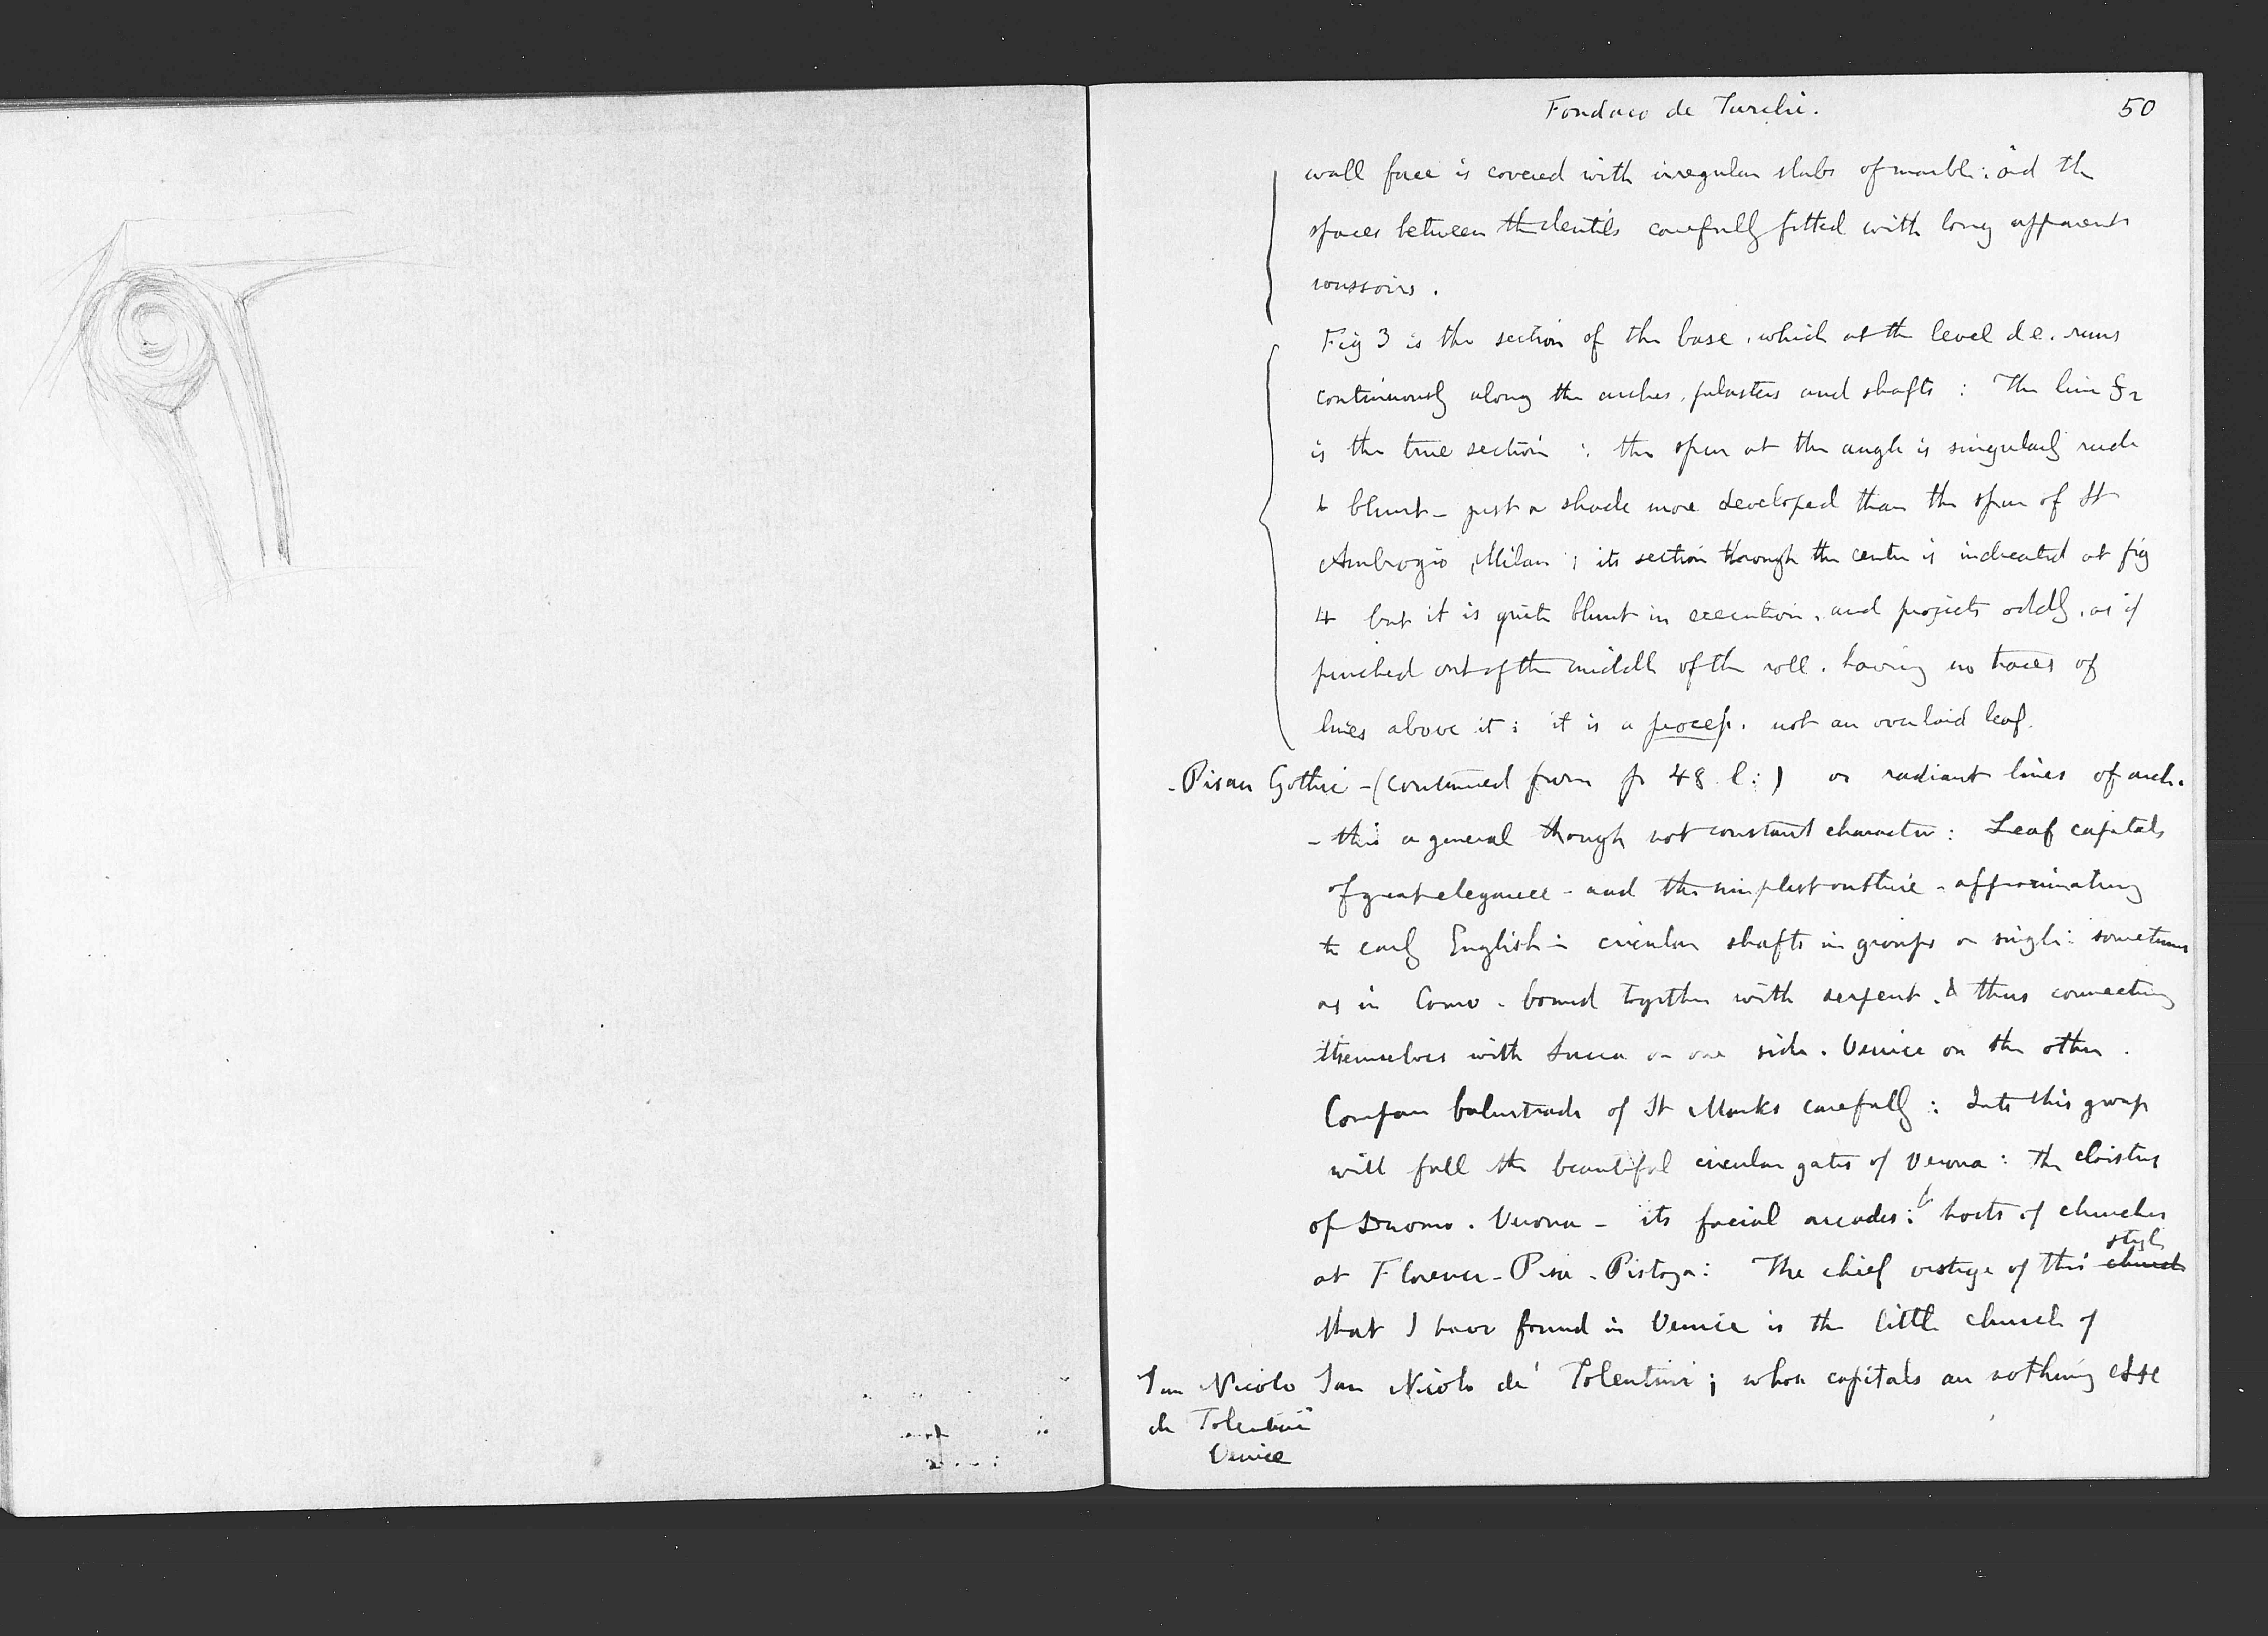 Fondaco de Turchi. 50
wall face is covered with irregular slabs of marble: and the
spaces between the dentils carefully fitted with long apparent
voussoirs.
Fig 3 is the section of the base, which at the level d e. runs
continuously along the arches, pilasters and shafts : The line
is the true section : the spur at the angle is singularly rude
& blunt - just a shade more developed than the spur of St
Ambrogio, Milan ; its section through the centre is indicated at fig
4 but it is quite blunt in execution, and projects oddly, as if
pinched out of the middle of the roll, having no traces of
lines above it : it is a process, not an overlaid leaf.
- Pisan Gothic - (continued from p 48 l:) or radiant lines of arch.
- this a general though not constant character : Leaf capitals
of great elegance - and the simplest outline - approximating
to early English - circular shafts in groups or single : sometimes
as in Como - bound together with serpent, & thus connecting
themselves with Lucca on one side. Venice on the other.
Compare balustrade of St Marks carefully : Into this group
will fall the beautiful circular gates of Verona : the cloisters
of Duomo. Verona - its facial arcades : & hosts of churches
at Florence - Pisa - Pistoja : The chief vestige of this church style
that I have found in Venice is the little church of
San Nicolo San Nicolo de' Tolentini ; whose capitals are nothing else
de Tolentini
Venice